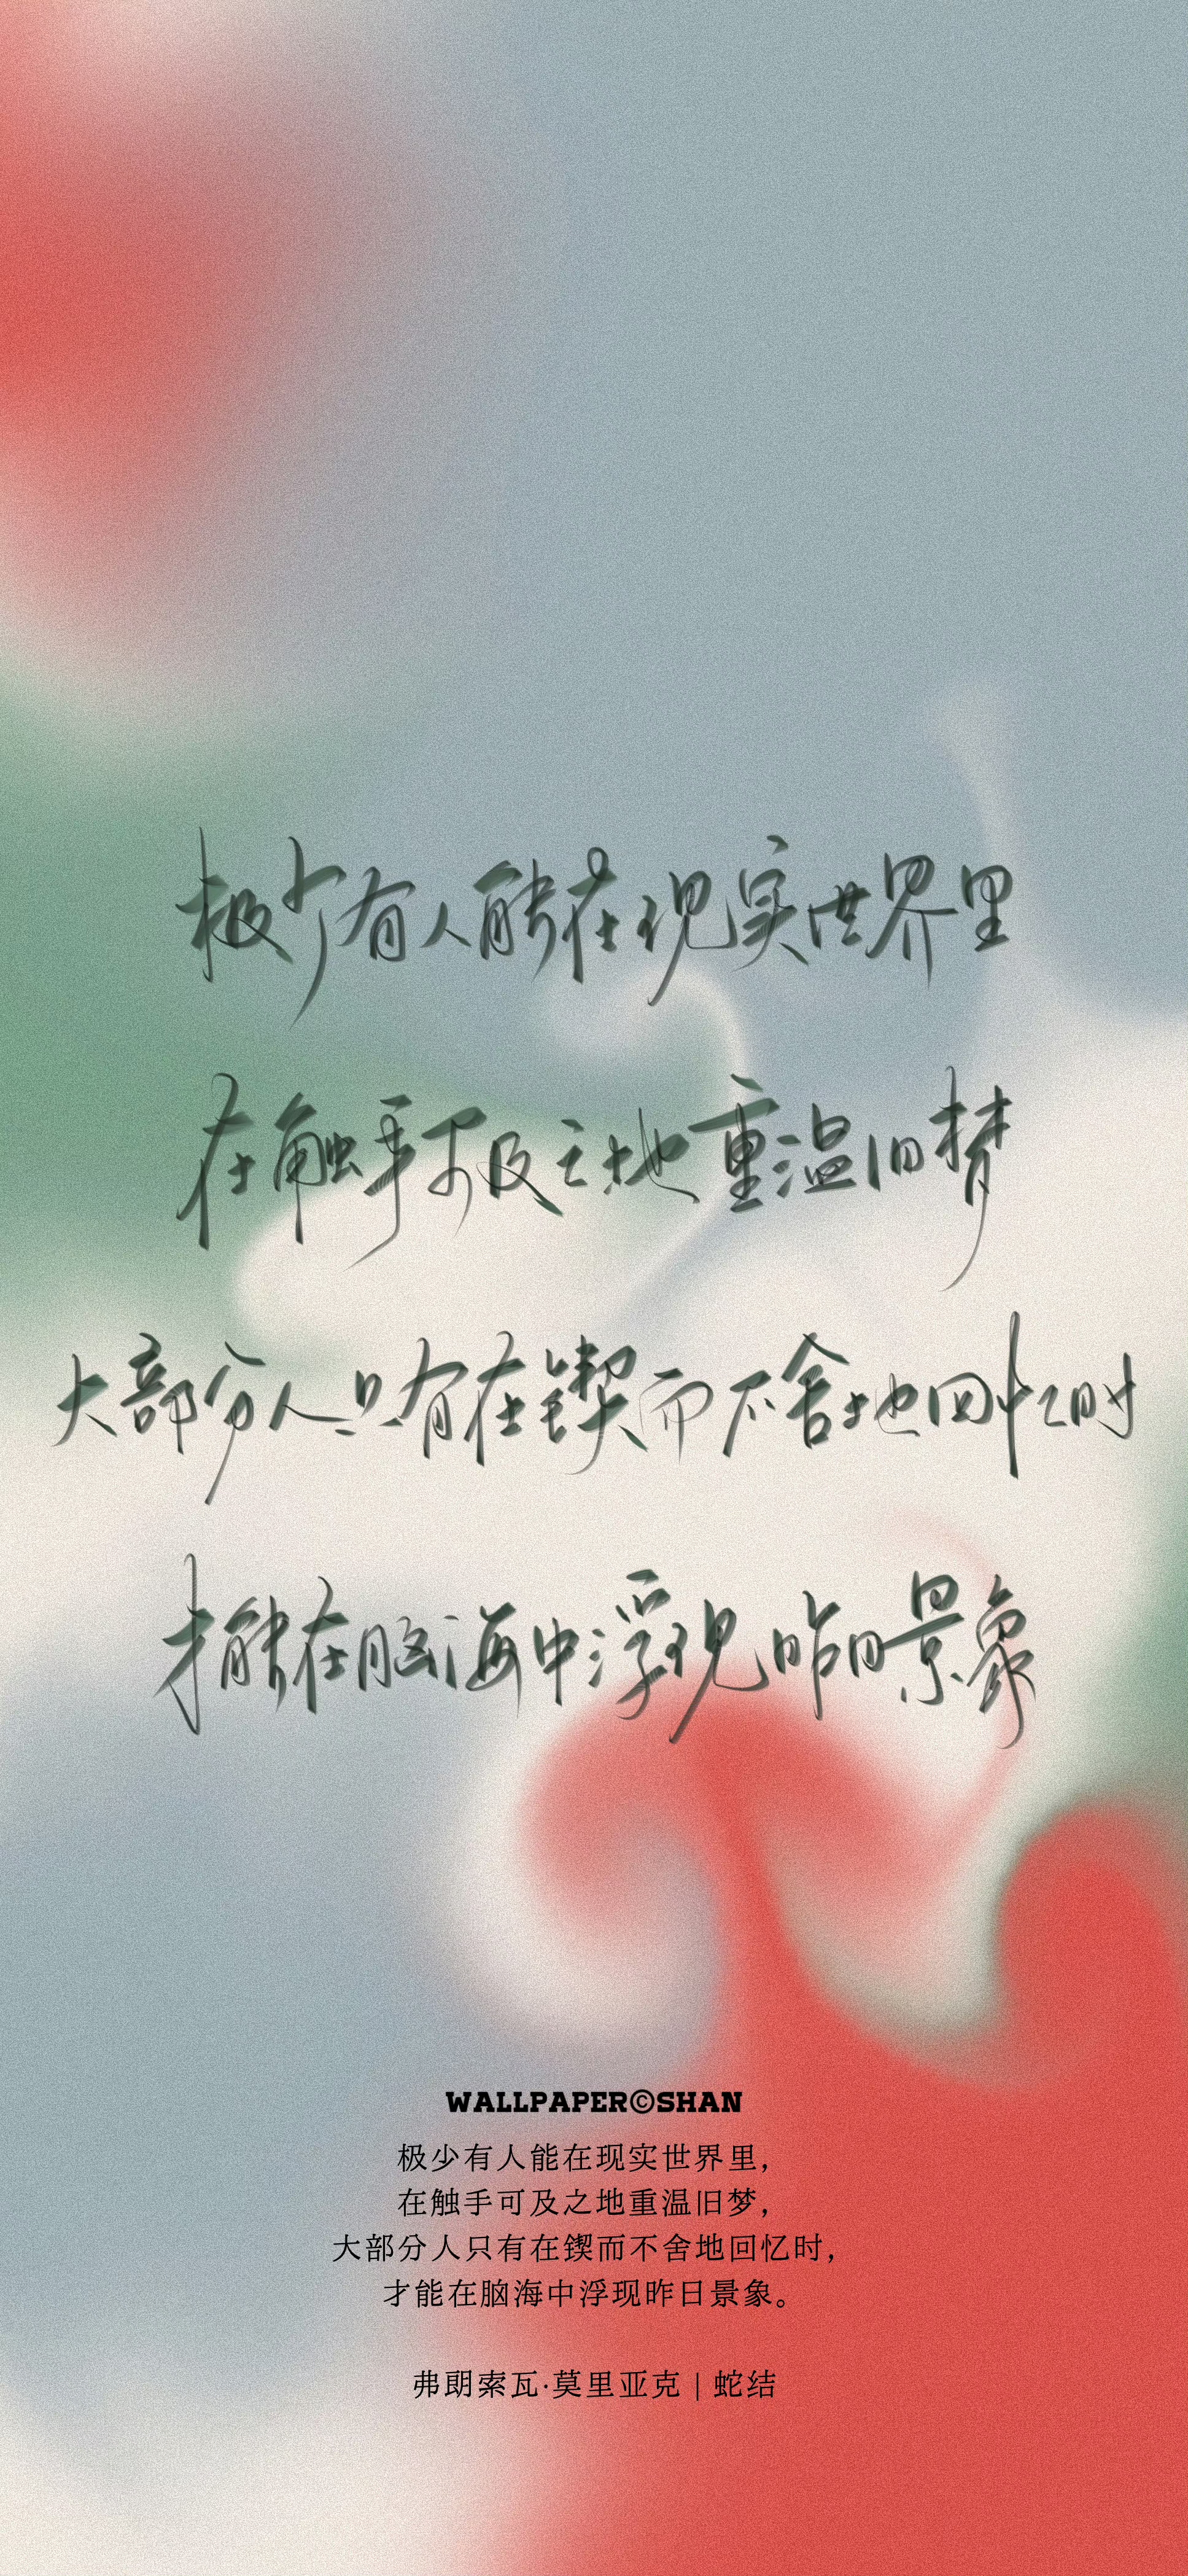 极少有人能在现实世界里
在触手可及之地重温旧梦
大部分人只有在锲而不舍地回忆时
才能在脑海中浮现昨日景象
WALLPAPER©SHAN
极少有人能在现实世界里，
在触手可及之地重温旧梦，
大部分人只有在锲而不舍地回忆时，
才能在脑海中浮现昨日景象。
弗朗索瓦·莫里亚克 | 蛇结